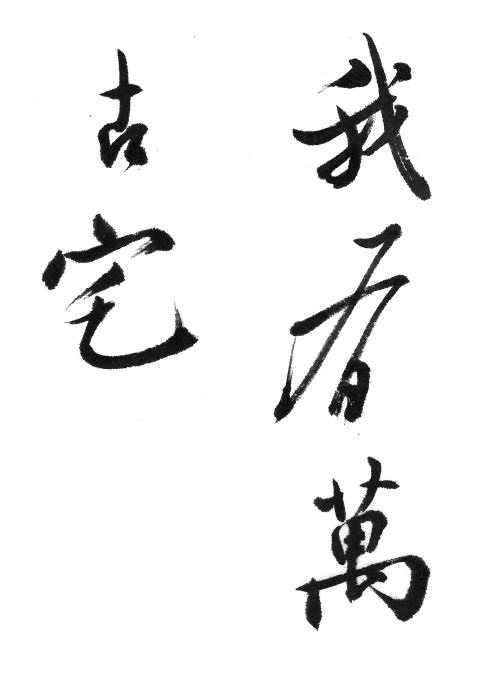 我有萬
古宅